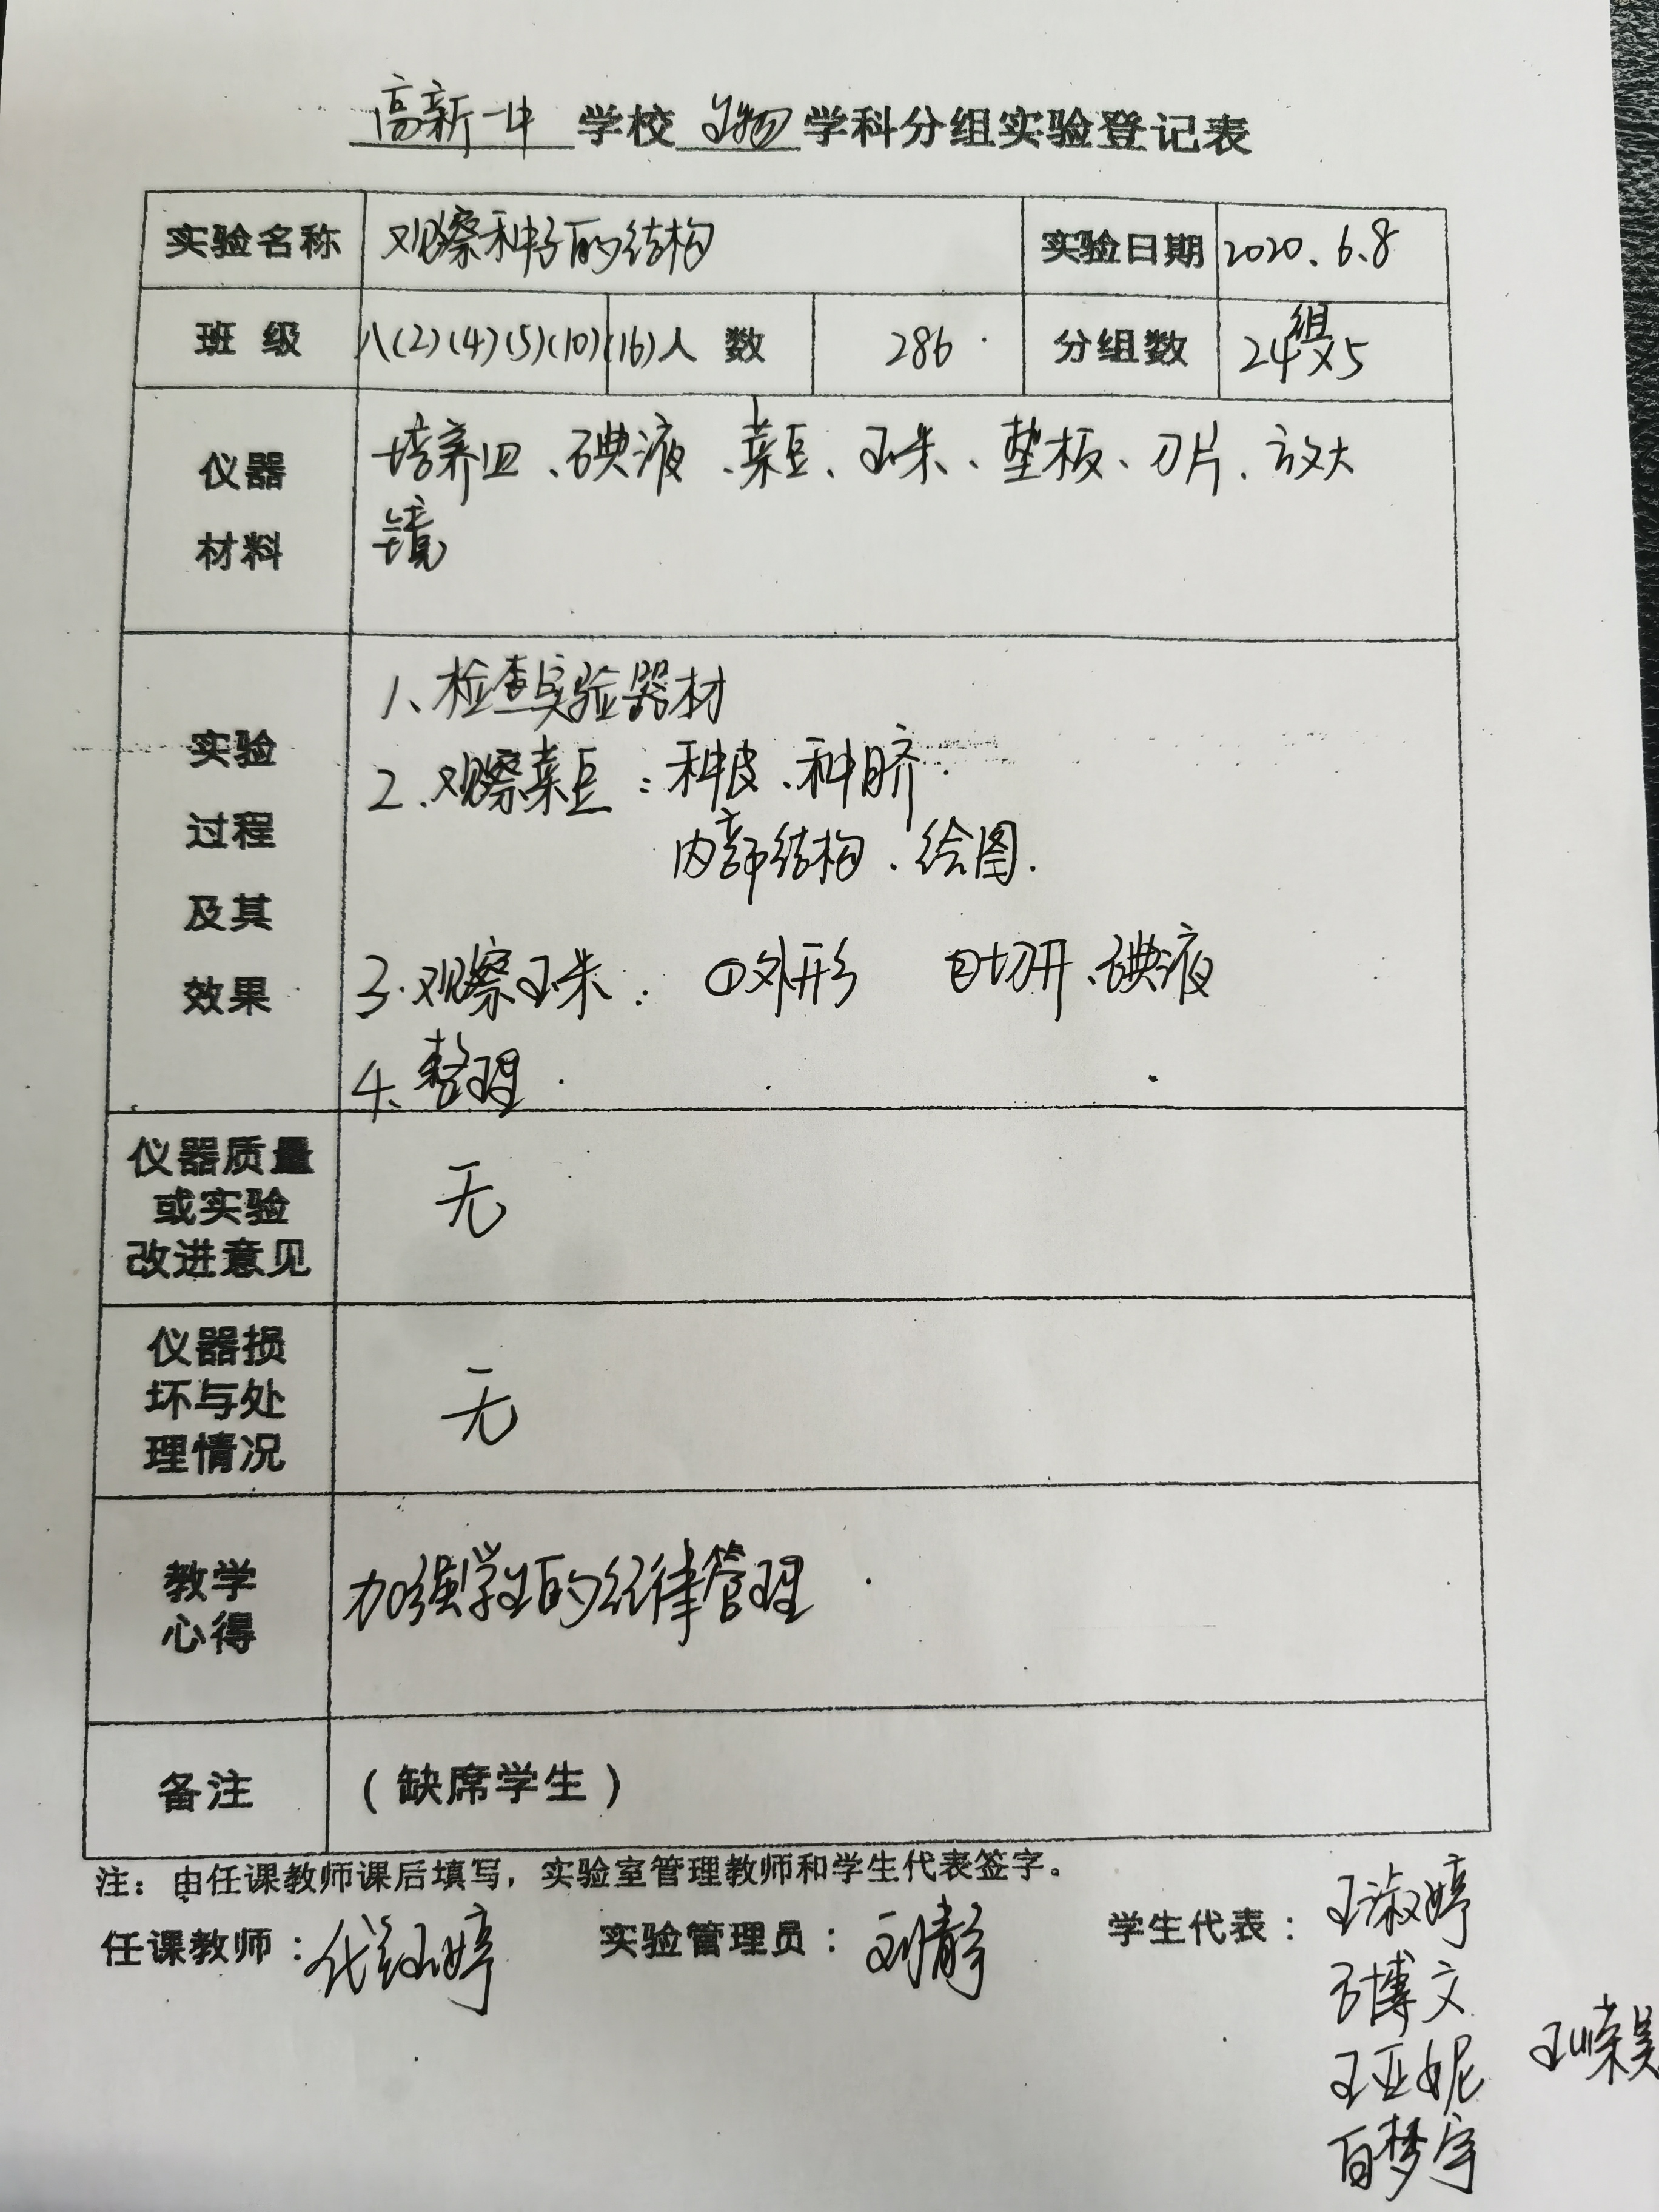 高新一中 学校 生物 学科分组实验登记表
实验名称 观察种子的结构 实验日期 2020.6.8
班 级 八(2)(4)(5)(10)(16) 人 数 286 分组数 24组×5
仪器 材料
培养皿、碘液、菜豆、玉米、垫板、刀片、放大
镜
实验 过程 及其 效果
1、检查实验器材
2、观察菜豆：种皮、种脐
内部结构、绘图.
3.观察玉米： ①外形 ②切开、碘液
4、整理
仪器质量
或实验
改进意见
无
仪器损
坏与处
理情况
无
教学
心得
加强学生的纪律管理
备注 (缺席学生)
注：由任课教师课后填写，实验室管理教师和学生代表签字。
任课教师： 实验管理员：刘静 学生代表：王淑婷
博文
王亚妮
白梦宇